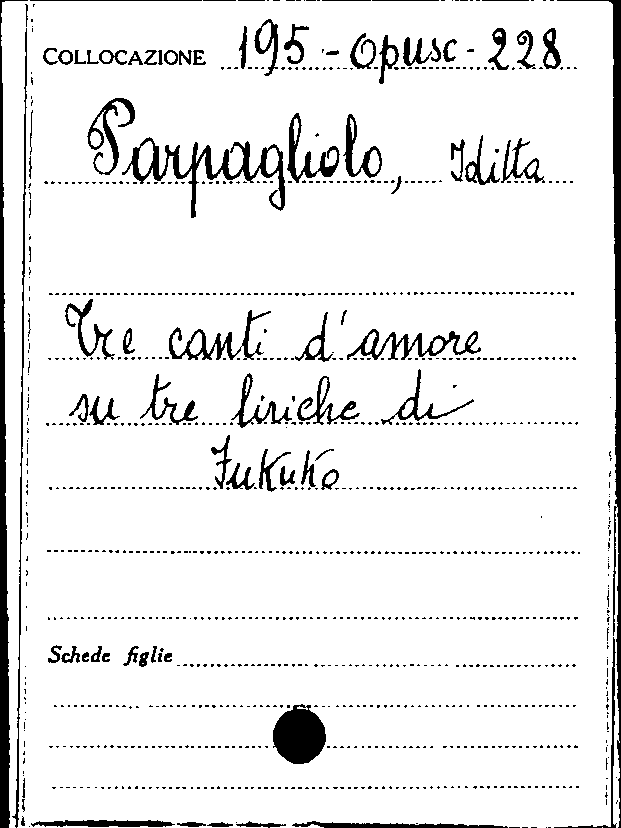 COLLOCAZIONE 195-opusc-228
Parpagliolo, Iditta
Tre canti d'amore
su tre liriche di
Fukuko
Schede figlie